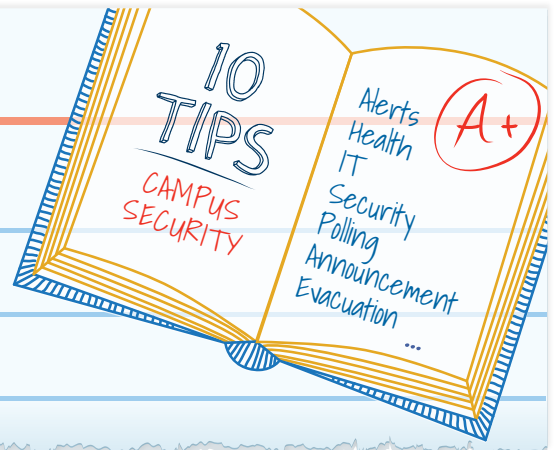 10
TIPS
CAMPUS
SECURITY
Alerts
Health
IT
Security
Polling
Announcement
Evacuation
...
A+